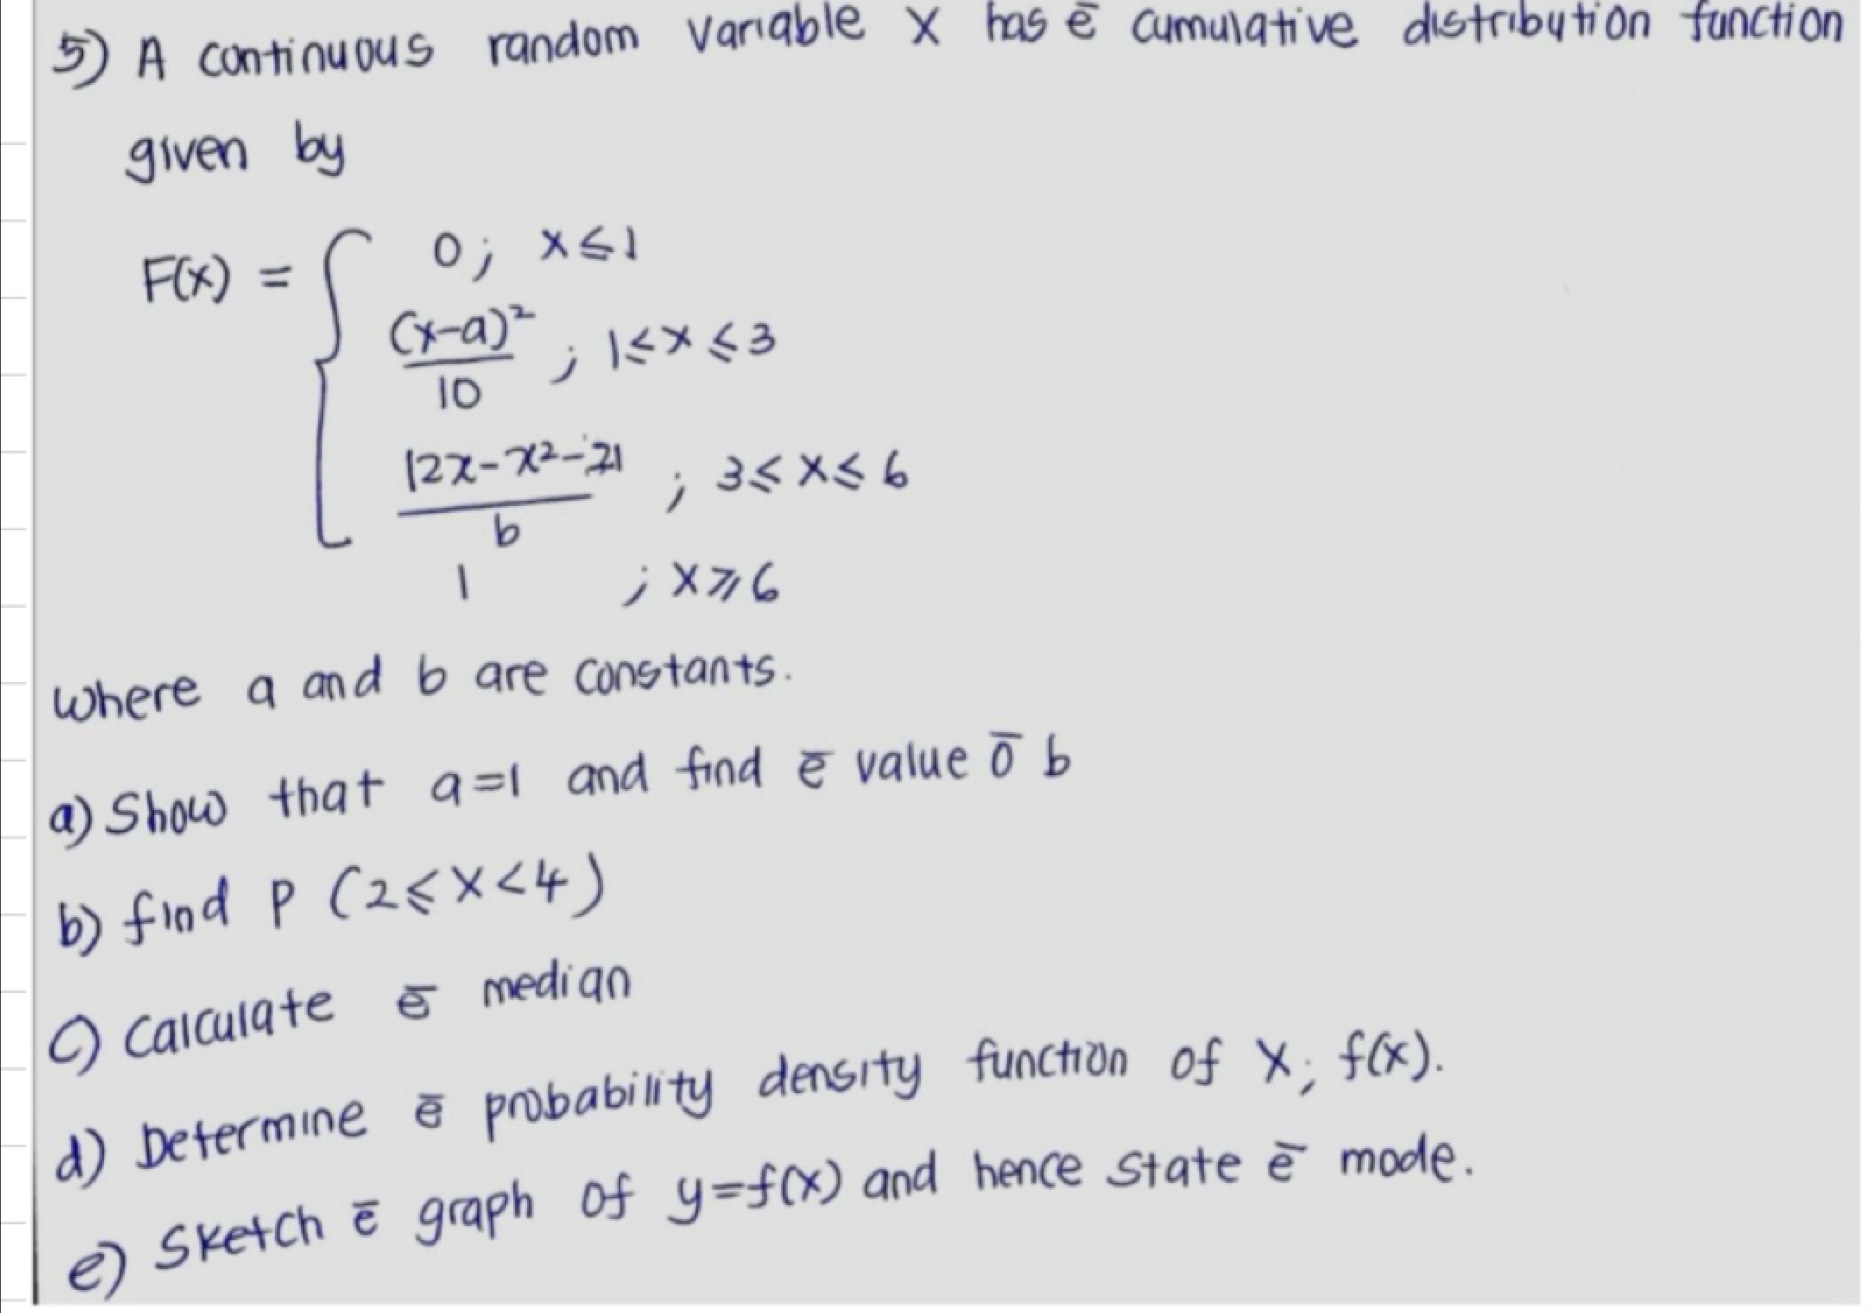 5) A continuous random variable X has ē cumulative distribution function
given by
F(x) = { 0; x ≤ 1
(x-a)²/10 ; 1 ≤ x ≤ 3
12x - x² - 21/b ; 3 ≤ x ≤ 6
1 ; x ≥ 6
where a and b are constants.
a) Show that a=1 and find ē value ō b
b) find P (2 ≤ X < 4)
c) Calculate ē median
d) Determine ē probability density function of X; f(x).
e) Sketch ē graph of y=f(x) and hence state ē mode.